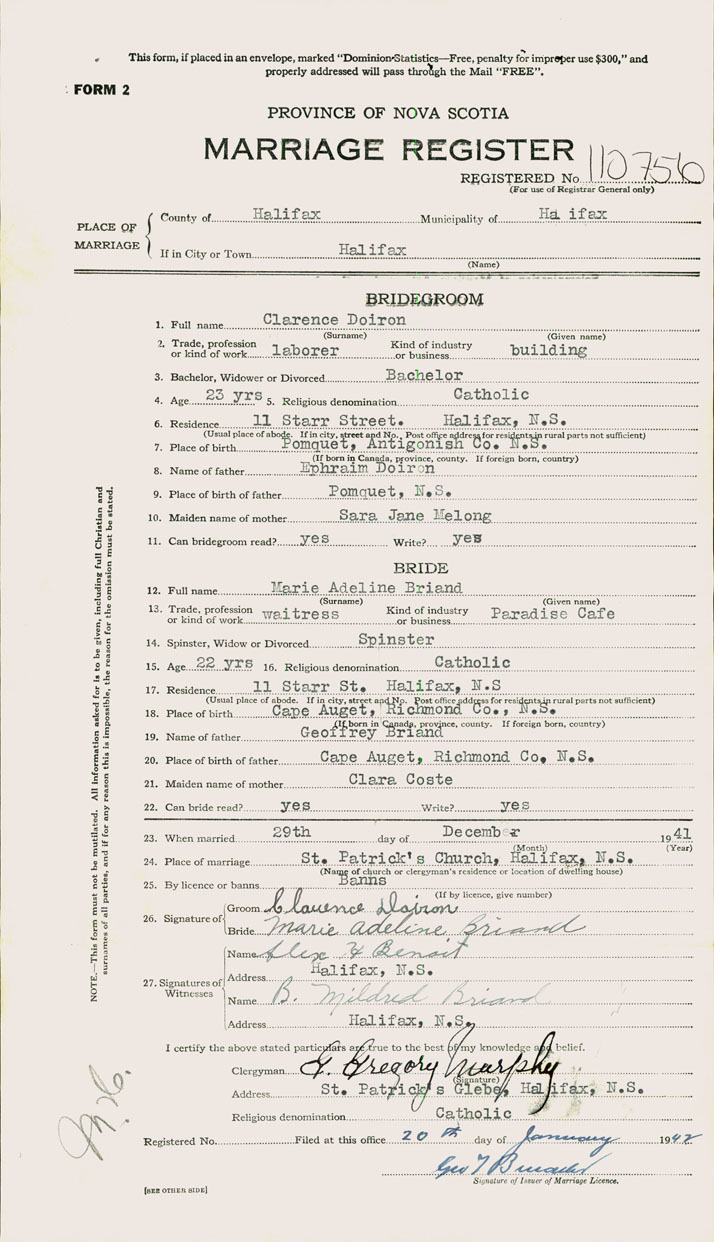 This form, if placed in an envelope, marked "Dominion Statistics—Free, penalty for improper use $300," and
properly addressed will pass through the Mail "FREE".
FORM 2
PROVINCE OF NOVA SCOTIA
MARRIAGE REGISTER
REGISTERED No. 110756
(For use of Registrar General only)
PLACE OF MARRIAGE
County of Halifax Municipality of Ha ifax
If in City or Town Halifax
(Name)
BRIDEGROOM
1. Full name Clarence Doiron
(Surname) (Given name)
2. Trade, profession or kind of work laborer Kind of industry or business building
3. Bachelor, Widower or Divorced Bachelor
4. Age 23 yrs 5. Religious denomination Catholic
6. Residence 11 Starr Street. Halifax, N.S.
(Usual place of abode. If in city, street and No. Post office address for residents in rural parts not sufficient)
7. Place of birth Pomquet, Antigonish Co. N.S.
(If born in Canada, province, county. If foreign born, country)
8. Name of father Ephraim Doiron
9. Place of birth of father Pomquet, N.S.
10. Maiden name of mother Sara Jane Melong
11. Can bridegroom read? yes Write? yes
BRIDE
12. Full name Marie Adeline Briand
(Surname) (Given name)
13. Trade, profession or kind of work waitress Kind of industry or business Paradise Cafe
14. Spinster, Widow or Divorced Spinster
15. Age 22 yrs 16. Religious denomination Catholic
17. Residence 11 Starr St. Halifax, N.S
(Usual place of abode. If in city, street and No. Post office address for residents in rural parts not sufficient)
18. Place of birth Cape Auget, Richmond Co., N.S.
(If born in Canada, province, county. If foreign born, country)
19. Name of father Geoffrey Briand
20. Place of birth of father Cape Auget, Richmond Co, N.S.
21. Maiden name of mother Clara Coste
22. Can bride read? yes Write? yes
23. When married 29th day of December 1941
(Month) (Year)
24. Place of marriage St. Patrick's Church, Halifax, N.S.
(Name of church or clergyman's residence or location of dwelling house)
25. By licence or banns Banns
(If by licence, give number)
26. Signature of
Groom Clarence Doiron
Bride Marie Adeline Briand
27. Signatures of Witnesses
Name Alex H Benoit
Address Halifax, N.S.
Name B. Mildred Briand
Address Halifax, N.S.
I certify the above stated particulars are true to the best of my knowledge and belief.
Clergyman G. Gregory Murphy
(Signature)
Address St. Patrick's Glebe, Halifax, N.S.
Religious denomination Catholic
Registered No. Filed at this office 20th day of January 1942
Geo T
Signature of Issuer of Marriage Licence.
[SEE OTHER SIDE]
NOTE.—This form must not be mutilated. All information asked for is to be given, including full Christian and
surnames of all parties, and if for any reason this is impossible, the reason for the omission must be stated.